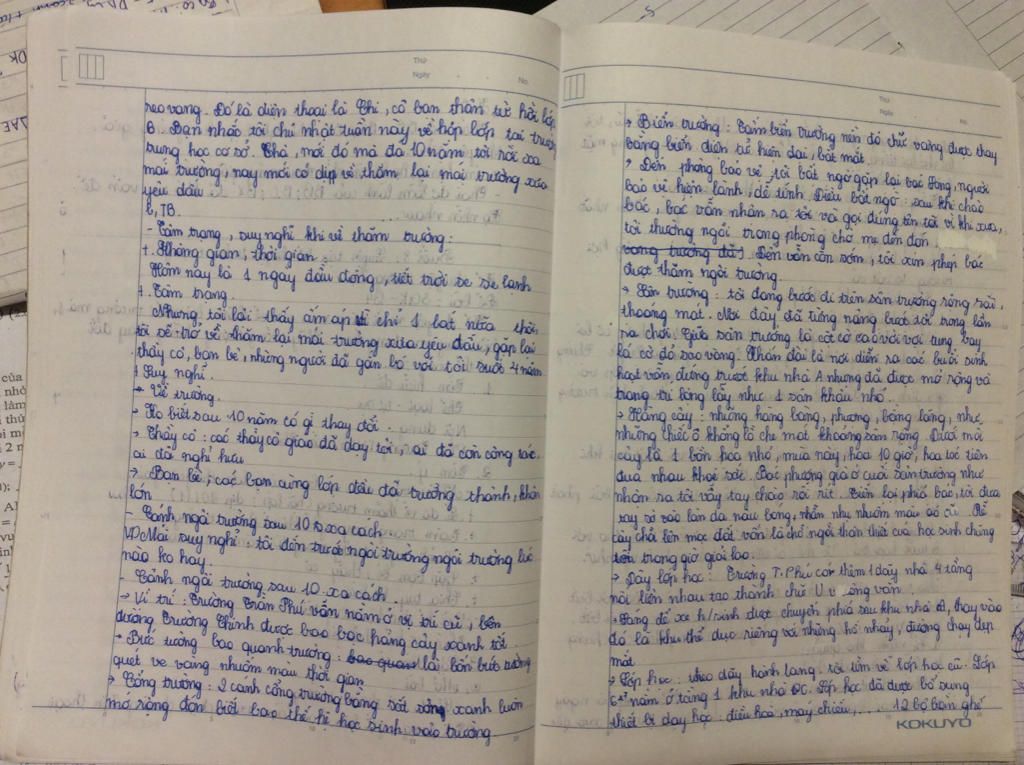 Thứ
Ngày
No.
reo vang. Đó là điện thoại là Chi, cô bạn thân từ hồi lớp
6. Bạn nhắc tôi chủ nhật tuần này về họp lớp tại trường
trung học cơ sở. Chà, mới đó mà đã 10 năm tôi rời xa
mái trường, nay mới có dịp về thăm lại mái trường xưa
yêu dấu.
b, TB
- Tâm trạng, suy nghĩ khi về thăm trường:
+. Không gian, thời gian
Hôm nay là 1 ngày đầu đông, tiết trời se se lạnh
+. Tâm trạng
Nhưng tôi lại thấy ấm áp vì chỉ 1 lát nữa thôi,
tôi sẽ trở về thăm lại mái trường xưa yêu dấu, gặp lại
thầy cô, bạn bè, những người đã gắn bó với tôi suốt 4 năm
+ Suy nghĩ.
→ Về trường.
→ Ko biết sau 10 năm có gì thay đổi.
→ Thầy cô: các thầy cô giáo đã dạy tôi, ai đã còn công tác
ai đã nghỉ hưu
→ Bạn bè; các bạn cùng lớp đều đã trưởng thành, khôn
lớn
- Cảnh ngôi trường sau 10 xa cách
Mải suy nghĩ, tôi đến trước ngôi trường ngôi trường lúc
nào ko hay.
- Cảnh ngôi trường sau 10 xa cách
→ Vị trí: Trường Trần Phú vẫn nằm ở vị trí cũ, bên
đường Trường Chinh được bao bọc hàng cây xanh tốt.
→ Bức tường bao quanh trường: là bốn bức tường
quét ve vàng nhuốm màu thời gian
→ Cổng trường: 2 cánh cổng trường bằng sắt xanh luôn
mở rộng đón biết bao thế hệ học sinh vào trường
Thứ
Ngày
No.
→ Biển trường: Tấm biển trường nền đỏ chữ vàng được thay
bằng biển điện tử hiện đại, bắt mắt.
→ Đến phòng bảo vệ, tôi bất ngờ gặp lại bác, người
bảo vệ hiền lành dễ tính. Điều bất ngờ: sau khi chào
bác, bác vẫn nhận ra tôi và gọi đúng tên tôi vì khi xưa,
tôi thường ngồi trong phòng chờ mẹ đến đón.
Đến vẫn còn sớm, tôi xin phép bác
được thăm ngôi trường.
→ Sân trường: tôi đang bước đi trên sân trường rộng rãi,
thoáng mát. Nơi đây đã từng nâng bước tôi trong lần
ra chơi. Giữa sân trường là cột cờ cao vời vợi tung bay
lá cờ đỏ sao vàng. Khán đài là nơi diễn ra các buổi sinh
hoạt vẫn đứng trước khu nhà A nhưng đã được mở rộng và
trang trí lộng lẫy như 1 sân khấu nhỏ.
→ Hàng cây: những hàng bàng, phượng, bằng lăng, như
những chiếc ô khổng lồ che mát khoảng sân rộng. Dưới mỗi
cây là 1 bồn hoa nhỏ, mùa này, hoa 10 giờ, hoa tóc tiên
đua nhau khoe sắc. Bác phượng già ở cuối sân trường như
nhận ra tôi vẫy tay chào rối rít. Tiến lại phía bác, tôi đưa
tay sờ vào làn da nâu bóng, nhẵn như nhuốm màu áo cũ. Rễ
cây chồi lên mặt đất vẫn là chỗ ngồi thân thiết của học sinh chúng
tôi trong giờ giải lao.
→ Dãy lớp học: Trường T. Phú có thêm 1 dãy nhà 4 tầng
nối liền nhau tạo thành chữ U vuông vắn
→ để xe h/sinh được chuyển phía sau khu nhà, thay vào
đó là khu thể dục riêng với những hố nhảy, đường chạy đẹp
mắt
→ Lớp học: theo dãy hành lang, tôi tìm về lớp học cũ. Lớp
nằm ở tầng 1 khu nhà. Lớp học đã được bổ sung
thiết bị dạy học: điều hòa, máy chiếu,.... 12 bộ bàn ghế
KOKUYO